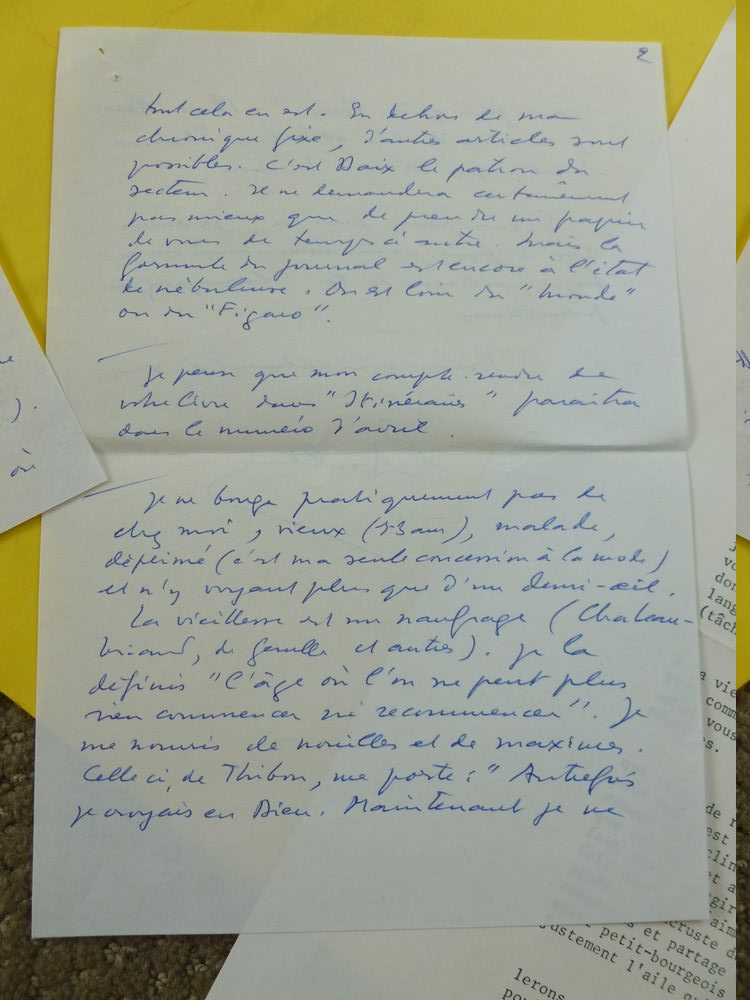 2
tout cela en est. En dehors de ma
chronique fixe, d'autres articles sont
possibles. C'est Daix le patron du
secteur. Il ne demandera certainement
pas mieux que de prendre un papier
de vous de temps à autre. Mais la
formule du journal est encore à l'état
de nébuleuse. On est loin du "Monde"
ou du "Figaro".
Je pense que mon compte-rendu de
votre livre dans "Itinéraires" paraîtra
dans le numéro d'avril.
Je ne bouge pratiquement pas de
chez moi, vieux (53 ans), malade,
déprimé (c'est ma seule concession à la mode)
et n'y voyant plus que d'un demi-œil.
La vieillesse est un naufrage (Chateau-
briand, de Gaulle et autres). Je la
définis "l'âge où l'on ne peut plus
rien commencer ni recommencer". Je
me nourris de nouilles et de maximes.
Celle ci, de Thibon, me porte : "Autrefois
je croyais en Dieu. Maintenant je ne
).
où
vo
don
lang
(tâch
a vie
comm
vous
s.
de r
est
clin
et a
rgir
aim
cruste d
s et partage
petit-bourgeois
justement l'aile
lerons
pou